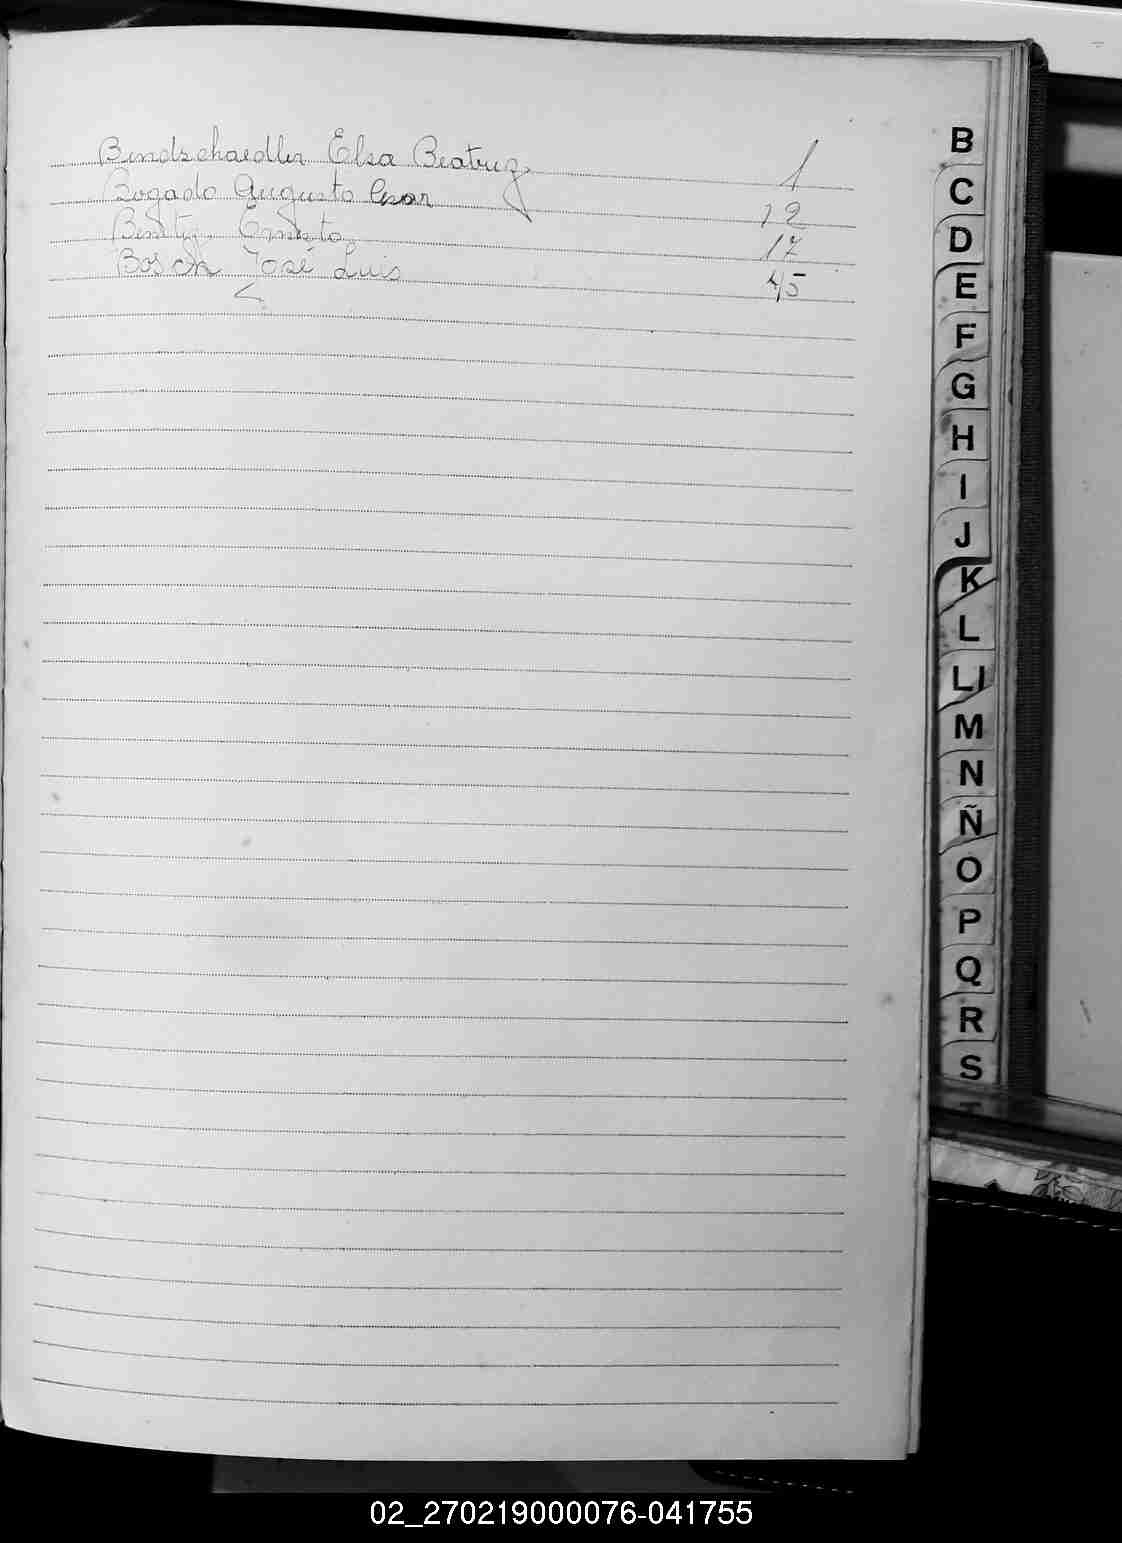 Bindschaedler Elsa Beatriz 1
Bogado Augusto Cesar 12
Benitez Ernesto 17
Bosch José Luis 45
B
C
D
E
F
G
H
I
J
K
L
Ll
M
N
Ñ
O
P
Q
R
S
02_270219000076-041755